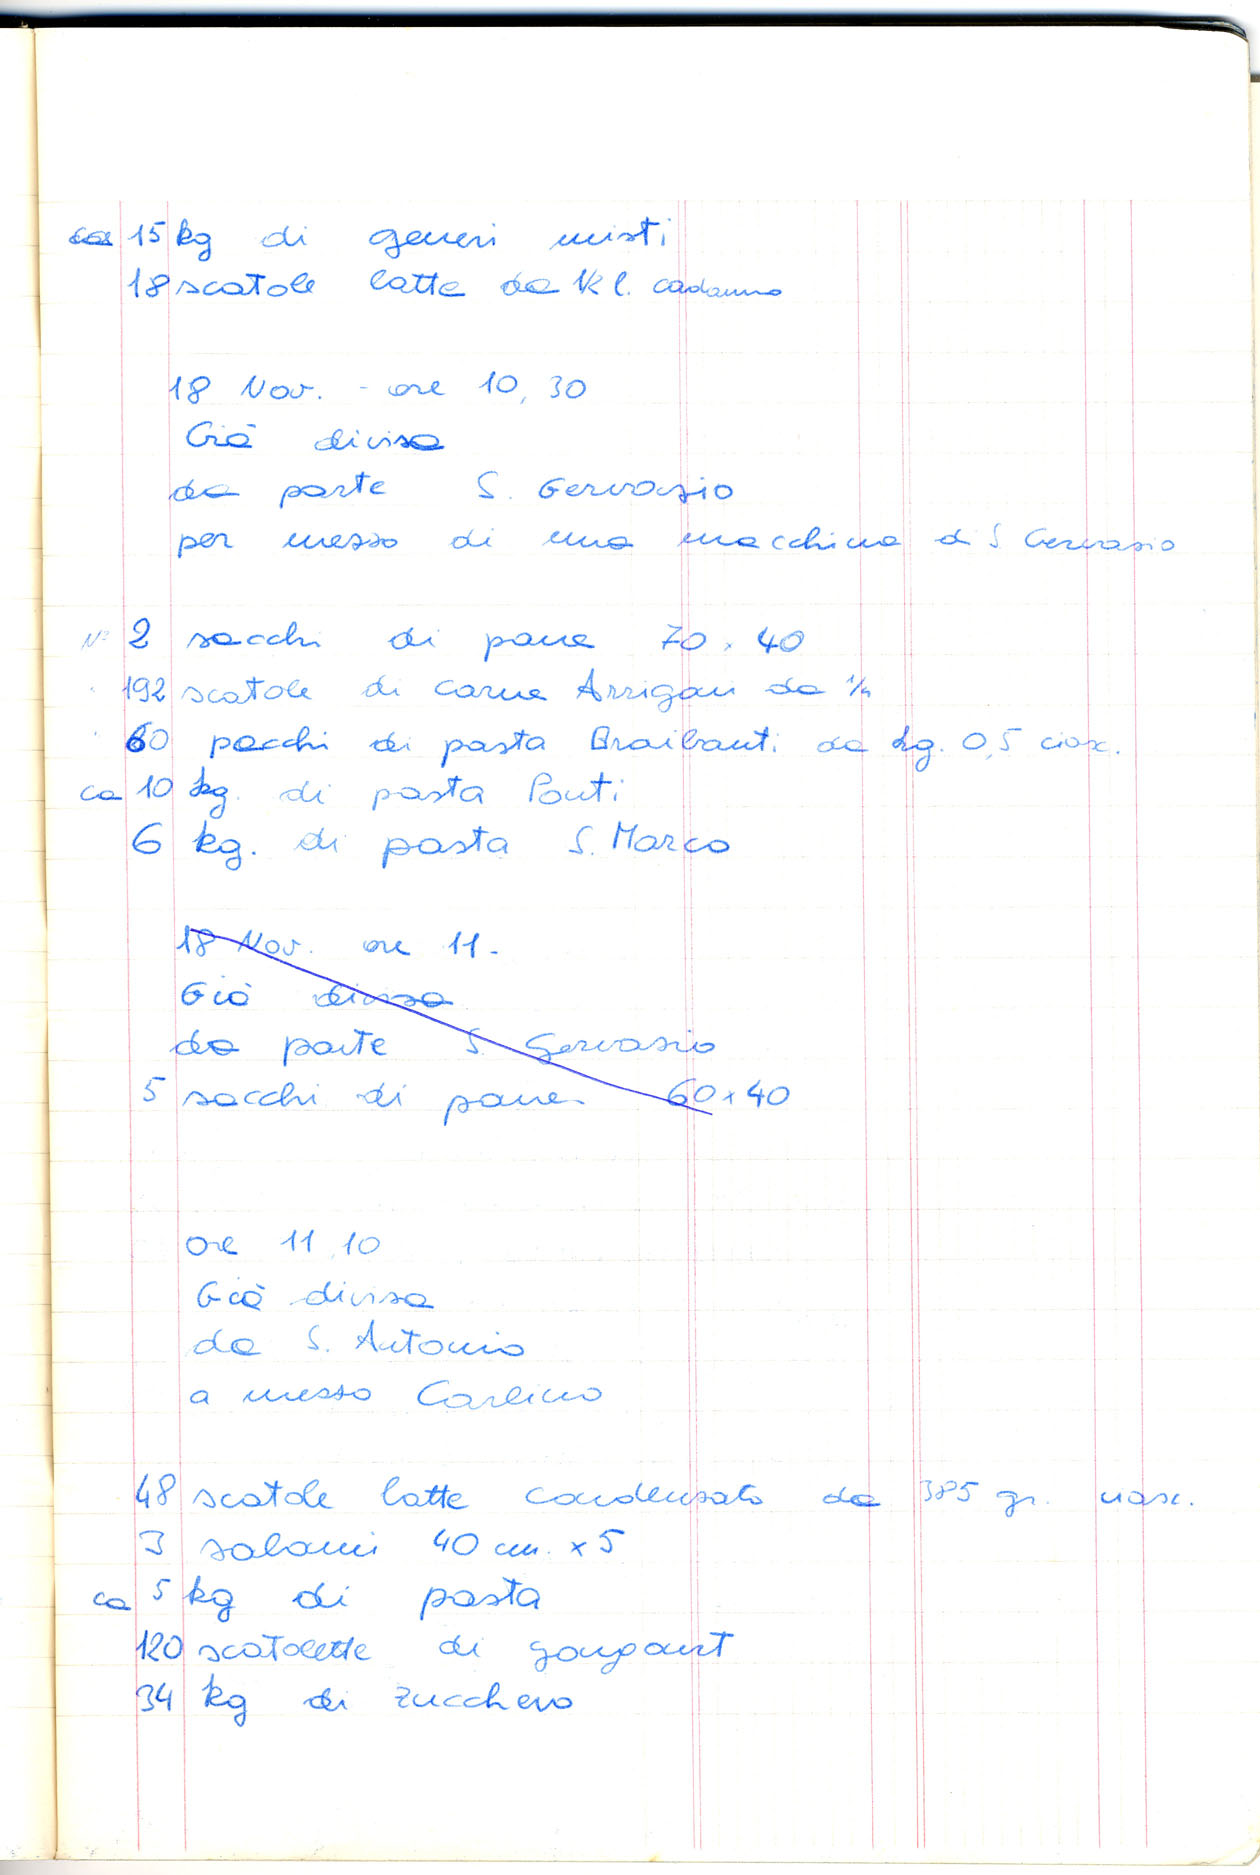 ca 15 kg di generi misti
18 scatole latte da ½ l. cadauno
18 Nov. - ore 10,30
Già divisa
da parte S. Gervasio
per messo di una macchina di S. Gervasio
N° 2 sacchi di pane 70 x 40
192 scatole di carne Arrigoni da ¼
60 pacchi di pasta Braibanti da kg. 0,5 ciasc.
ca 10 kg. di pasta Ponti
6 kg. di pasta S. Marco
18 Nov. ore 11.-
Già divisa
da parte S. Gervasio
5 sacchi di pane 60 x 40
ore 11,10
Già divisa
da S. Antonio
a messo Carlino
48 scatole latte condensato da 385 gr. ciasc.
3 salami 40 cm. x 5
ca 5 kg di pasta
120 scatolette di
34 kg di zucchero